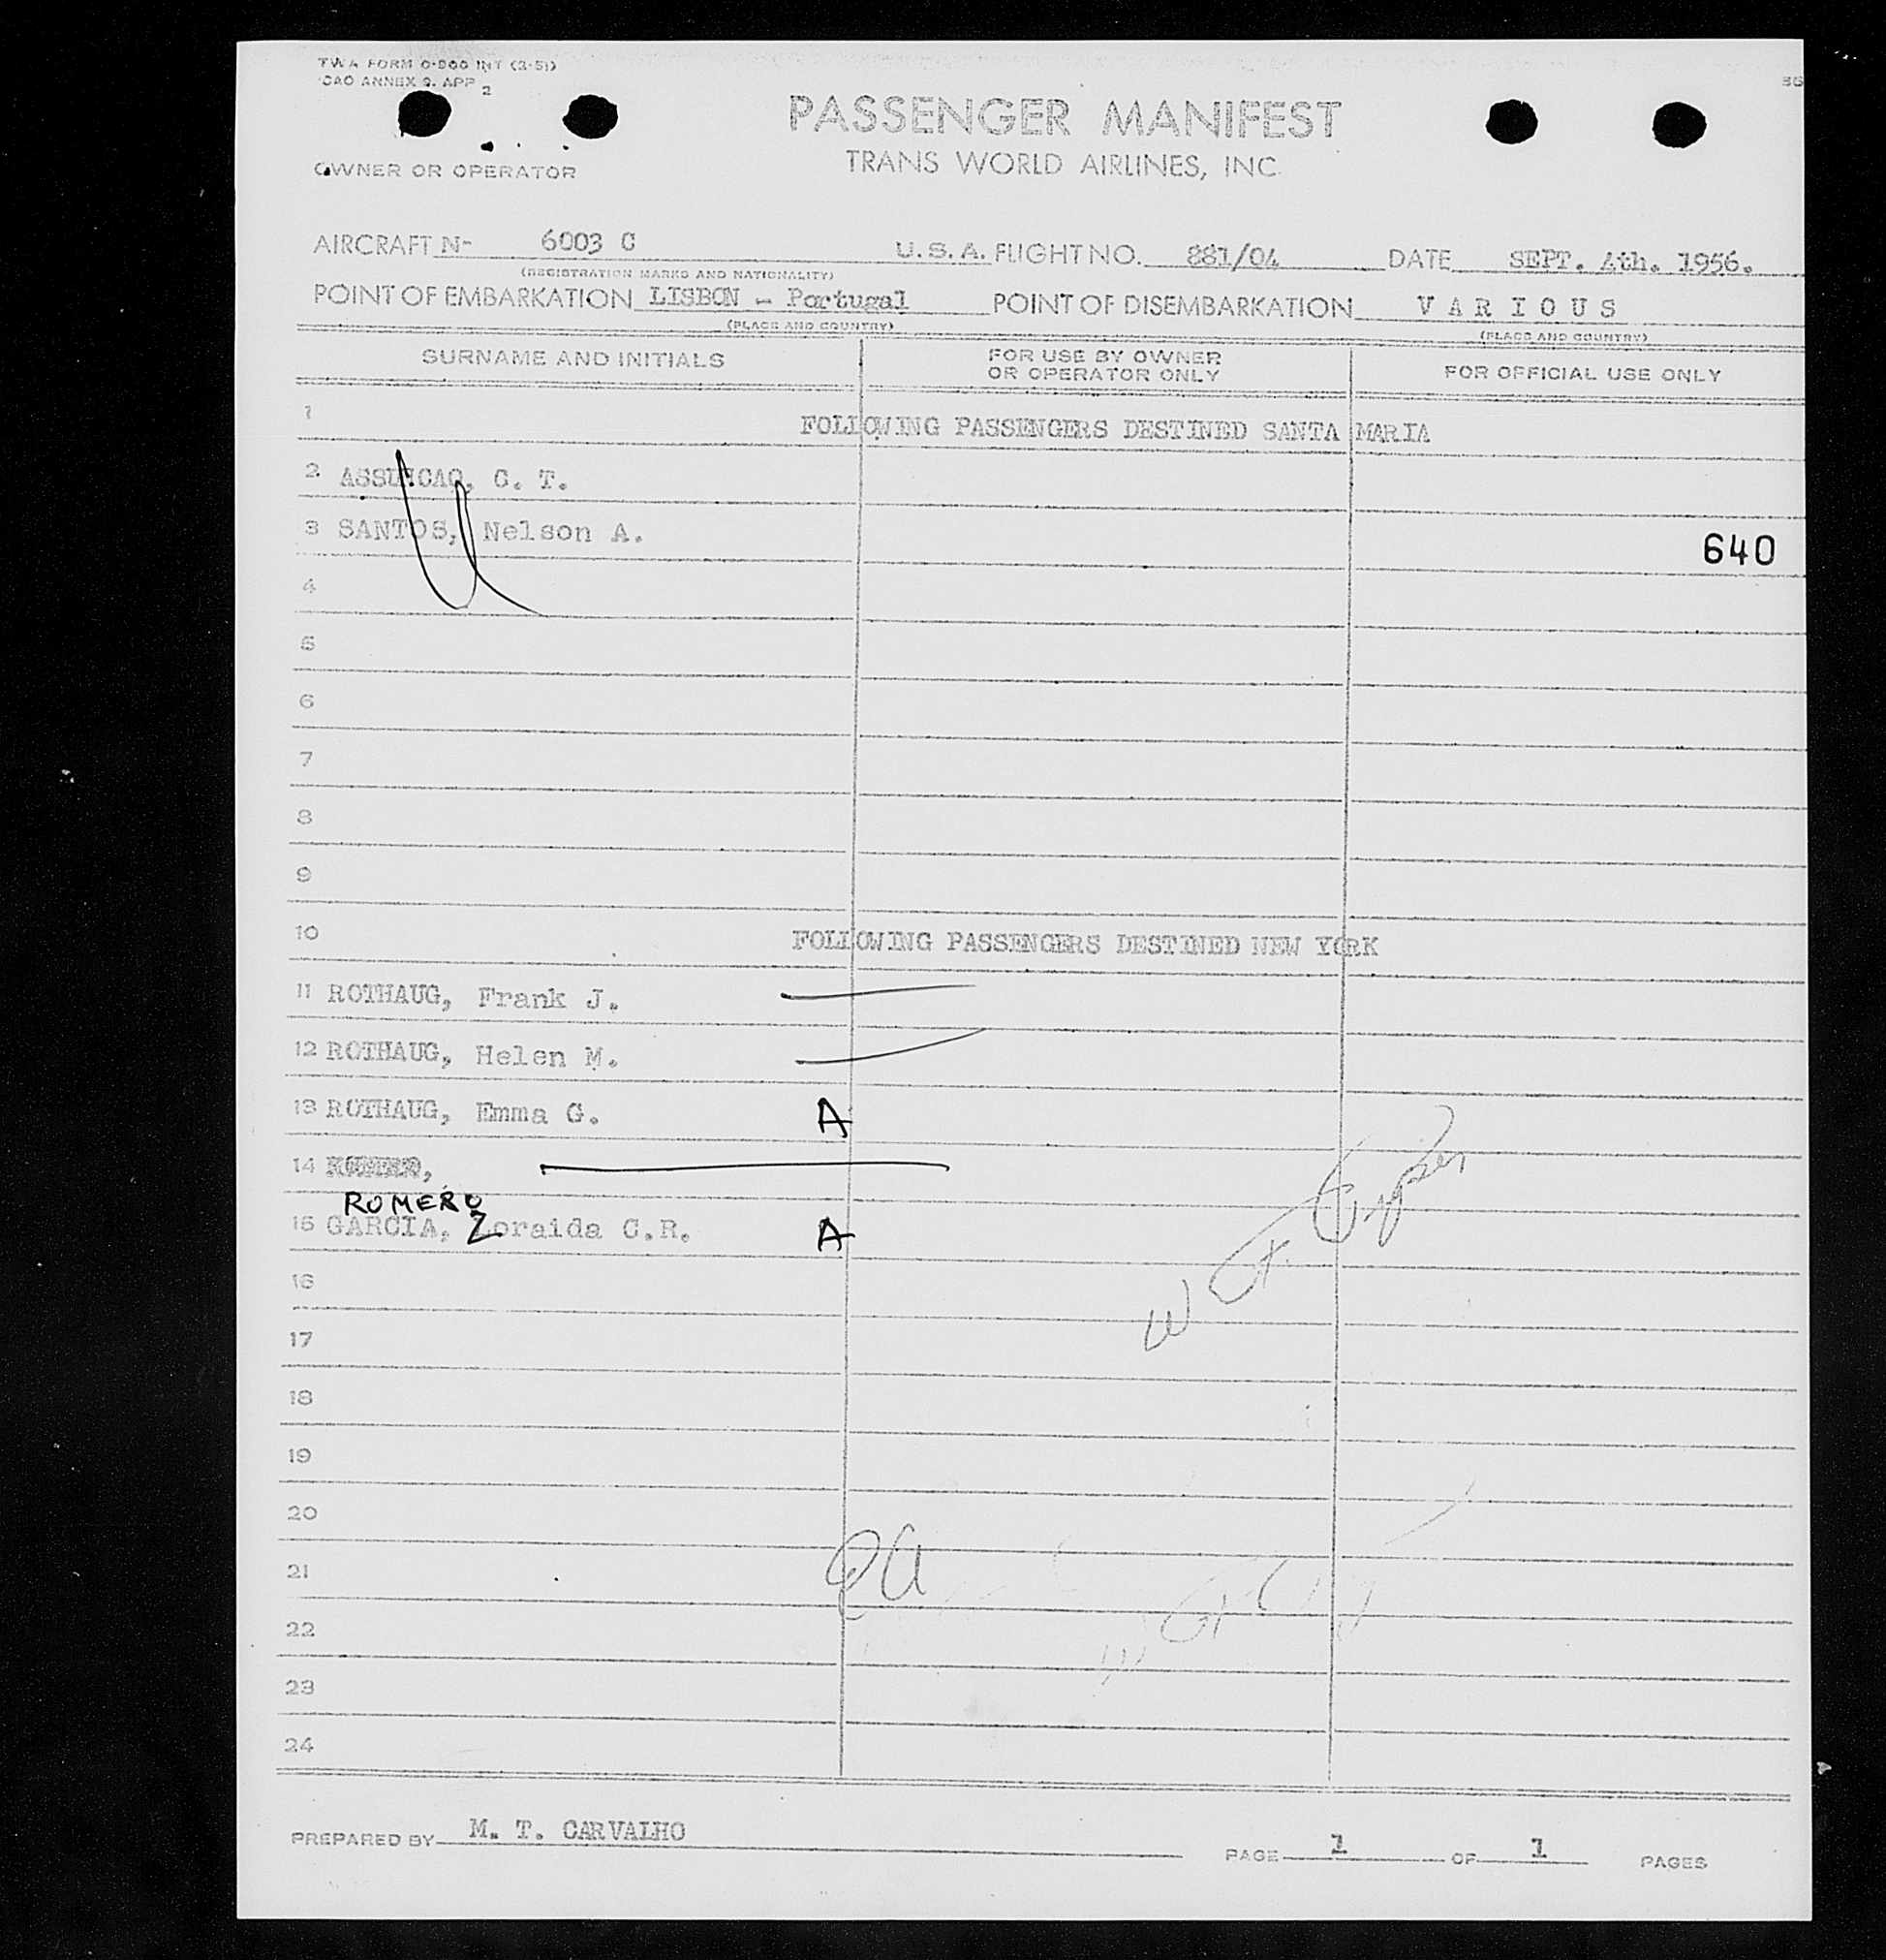 TWA FORM O-800 INT (3-51)
ICAO ANNEX 9. APP 2
PASSENGER MANIFEST
TRANS WORLD AIRLINES, INC.
OWNER OR OPERATOR
AIRCRAFT N- 6003 C U.S.A. FLIGHT NO. 881/04 DATE SEPT. 4th. 1956.
(REGISTRATION MARKS AND NATIONALITY)
POINT OF EMBARKATION LISBON - Portugal POINT OF DISEMBARKATION V A R I O U S
(PLACE AND COUNTRY) (PLACE AND COUNTRY)
SURNAME AND INITIALS FOR USE BY OWNER OR OPERATOR ONLY FOR OFFICIAL USE ONLY
1 FOLLOWING PASSENGERS DESTINED SANTA MARIA
2 ASSUNCAO, C. T.
3 SANTOS, Nelson A. 640
4
5
6
7
8
9
10 FOLLOWING PASSENGERS DESTINED NEW YORK
11 ROTHAUG, Frank J.
12 ROTHAUG, Helen M.
13 ROTHAUG, Emma G. A
14
ROMERO
15 GARCIA, Zoraida C.R. A
16
17
18
19
20
21
22
23
24
PREPARED BY M. T. CARVALHO PAGE 1 OF 1 PAGES